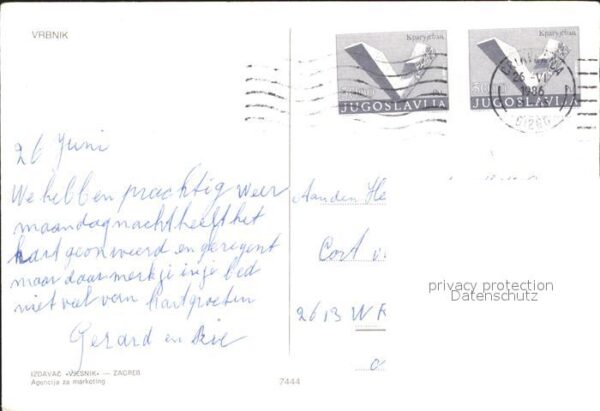 VRBNIK
Крагујевац
JUGOSLAVIJA
JUGOSLAVIJA
26 -VI
1986
26 Juni
We hebben prachtig weer
maandagnacht heeft het
hart geonweerd en geregent
maar daar merk je in je bed
niet veel van Hart groeten
Gerard en
Aan den He
Cort v
2613 W
privacy protection
Datenschutz
IZDAVAČ «VJESNIK» — ZAGREB
Agencija za marketing
7444